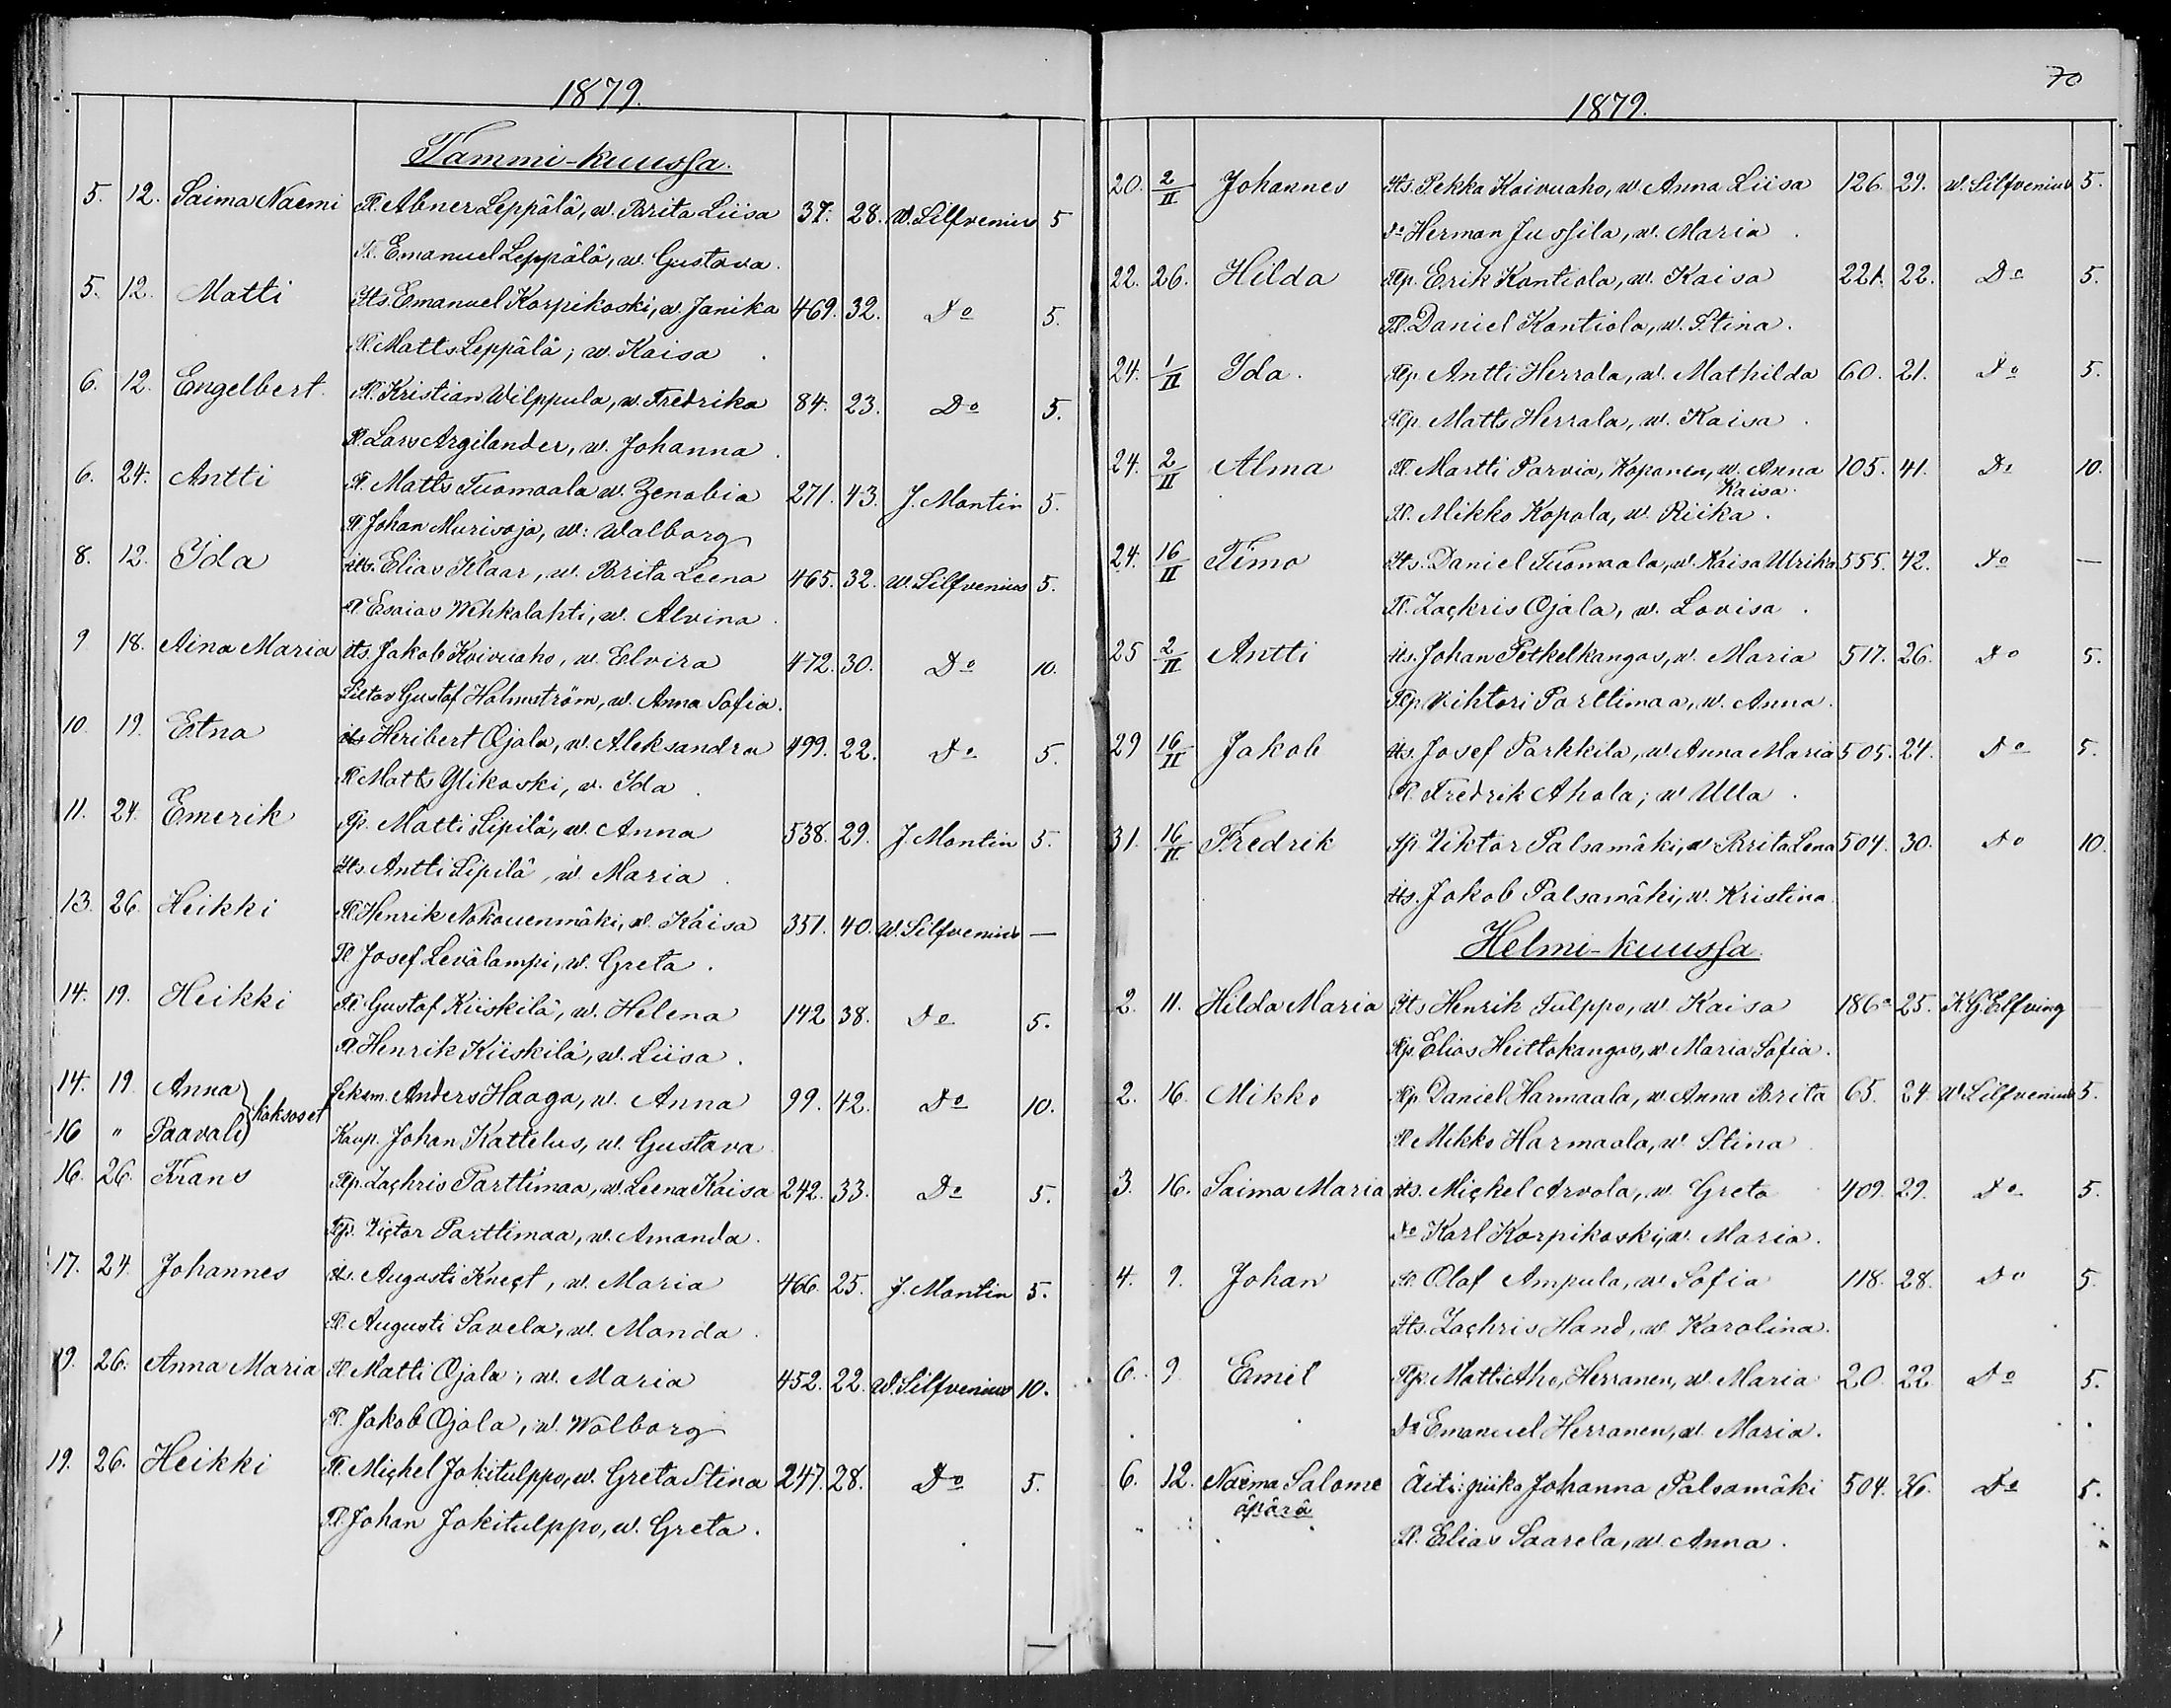 1879.
Tammi-kuussa.
5. 12. Saima Naemi Tl. Abner Leppälä, w. Brita Liisa 37. 28. W. Silfvenius 5
Tl. Emanuel Leppälä, w. Gustava.
5. 12. Matti Its. Emanuel Korpikoski, w. Janika 469. 32. Do 5.
Tl. Matts Leppälä, w. Kaisa
6. 12. Engelbert. Tl. Kristian Wilppula, w. Fredrika 84. 23. Do 5.
Tl. Lars Argilander, w. Johanna
6. 24. Antti Tl. Matts Tuomaala w. Zenobia 271. 43. J. Montin 5.
Tl. Johan Murisoja, w. Walborg
8. 12. Ida Its. Elias Klaar, w. Brita Leena 465. 32. W. Silfvenius 5.
Tl. Esaias Wehkalahti, w. Alvina
9 18. Aina Maria Its. Jakob Koivuaho, w. Elvira 472. 30. Do 10.
Gustaf Holmström, w. Anna Sofia.
10. 19. Etna Its. Heribert Ojala, w. Aleksandra 499. 22. Do 5.
Tl. Matts Ylikoski, w. Ida
11. 24. Emerik Tp. Matti Sipilä, w. Anna 538. 29. J. Montin 5.
Its. Antti Sipilä, w. Maria
13. 26. Heikki Tl. Henrik Nokouenmäki, w. Kaisa 351. 40. W. Silfvenius —
Tl. Josef Levälampi, w. Greta.
14. 19. Heikki Tl. Gustaf Kiiskilä, w. Helena 142 38. Do 5.
Tl. Henrik Kiiskilä, w. Liisa.
14. 19. Anna } kaksoset Anders Haaga, w. Anna 99. 42. Do 10.
16 " Paavali Kaup. Johan Kattelus, w. Gustava
16. 26. Frans Tp. Zachris Parttimaa, w. Leena Kaisa 242. 33. Do 5.
Tp. Victor Parttimaa, w. Amanda.
17. 24. Johannes Its. Augusti Knect, w. Maria 466. 25. J. Montin 5.
Tl. Augusti Savela, w. Manda.
19. 26. Anna Maria Tl. Matti Ojala, w. Maria 452. 22. W. Silfvenius 10.
Tl. Jakob Ojala, w. Walborg
19. 26. Heikki Tl. Michel Jokitulppo, w. Greta Stina 247. 28. Do 5.
Tl. Johan Jokitulppo, w. Greta.
70
1879.
20. 2/II Johannes Its. Pekka Koivuaho, w. Anna Liisa 126. 29. W. Silfvenius 5.
Do Herman Jussila, w. Maria
22. 26. Hilda Tp. Erik Kontiola, w. Kaisa 221. 22. Do 5.
Tl. Daniel Kontiola, w. Stina.
24. 1/II Ida. Tp. Antti Herrala, w. Mathilda 60. 21. Do 5.
Tp. Matts Herrala, w. Kaisa
24. 2/II Alma Tl. Martti Parvia, Koponen, w. Anna 105. 41. Do 10.
Kaisa.
Tl. Mikko Kopola, w. Riika.
24. 16/II Timo Its. Daniel Tuomaala, w. Kaisa Ulrika 555. 42. Do —
Tl. Zachris Ojala, w. Lovisa.
25 2/II Antti Its. Johan Petkelkangas, w. Maria 517. 26. Do 5.
Tp. Vihtori Parttimaa, w. Anna.
29 16/II Jakob Its. Josef Parkkila, w. Anna Maria 505. 24. Do 5.
Tl. Fredrik Ahola, w Ulla.
31. 16/II Fredrik Tp. Viktor Palsamäki, w Brita Lena 504. 30. Do 10.
Its. Jakob Palsamäki, w. Kristina
Helmi-kuussa.
2. 11. Hilda Maria Its Henrik Tulppo, w. Kaisa 186a 25. K.G. Elfving —
Tp. Elias Heittokangas, w. Maria Sofia.
2. 16. Mikko Tp Daniel Harmaala, w. Anna Brita 65. 24. W. Silfvenius 5.
Tl. Mikko Harmaala, w. Stina
3. 16. Saima Maria Its. Michel Arvola, w. Greta 409. 29. Do 5.
Do Karl Korpikoski, w. Maria.
4. 9. Johan Tl. Olaf Ampula, w Sofia 118. 28. Do 5.
Its. Zachris Hand, w. Karolina.
6. 9. Emil Tp. Matti Aho, Herranen, w. Maria 20. 22 Do 5.
Do Emanuel Herranen, w. Maria.
6. 12. Naëma Salome Äiti: piika Johanna Palsamäki 504. 36. Do 5.
äpärä
Tl. Elias Saarela, w. Anna.